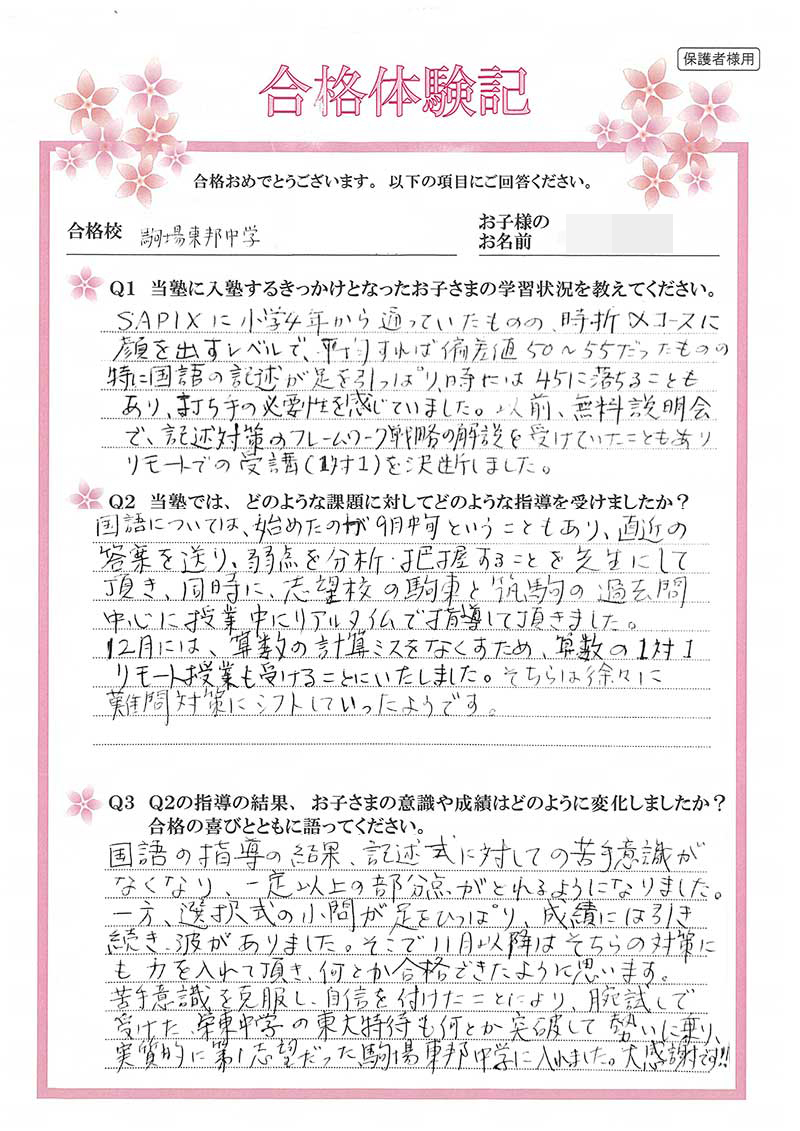 保護者様用
合格体験記
合格おめでとうございます。以下の項目にご回答ください。
合格校 駒場東邦中学
お子様の
お名前
Q1 当塾に入塾するきっかけとなったお子さまの学習状況を教えてください。
SAPIXに小学4年から通っていたものの、時折αコースに
顔を出すレベルで、平均すれば偏差値50～55だったものの
特に国語の記述が足を引っぱり、時には45に落ちることも
あり、打ち手の必要性を感じていました。以前、無料説明会
で、記述対策のフレームワーク戦略の解説を受けていたこともあり
リモートでの受講(1対1)を決断しました。
Q2 当塾では、どのような課題に対してどのような指導を受けましたか？
国語については、始めたのが9月中旬ということもあり、直近の
答案を送り、弱点を分析・把握することを先生にして
頂き、同時に、志望校の駒東と筑駒の過去問
中心に授業中にリアルタイムで指導して頂きました。
12月には、算数の計算ミスをなくすため、算数の1対1
リモート授業も受けることにいたしました。そちらは徐々に
難問対策にシフトしていったようです。
Q3 Q2の指導の結果、お子さまの意識や成績はどのように変化しましたか？
合格の喜びとともに語ってください。
国語の指導の結果、記述式に対しての苦手意識が
なくなり、一定以上の部分点がとれるようになりました。
一方、選択式の小問が足をひっぱり、成績には引き
続き波がありました。そこで11月以降はそちらの対策に
も力を入れて頂き、何とか合格できたように思います。
苦手意識を克服し、自信を付けたことにより、腕試しで
受けた栄東中学の東大特待も何とか突破して勢いに乗り、
実質的に第1志望だった駒場東邦中学に入れました。大感謝です!!